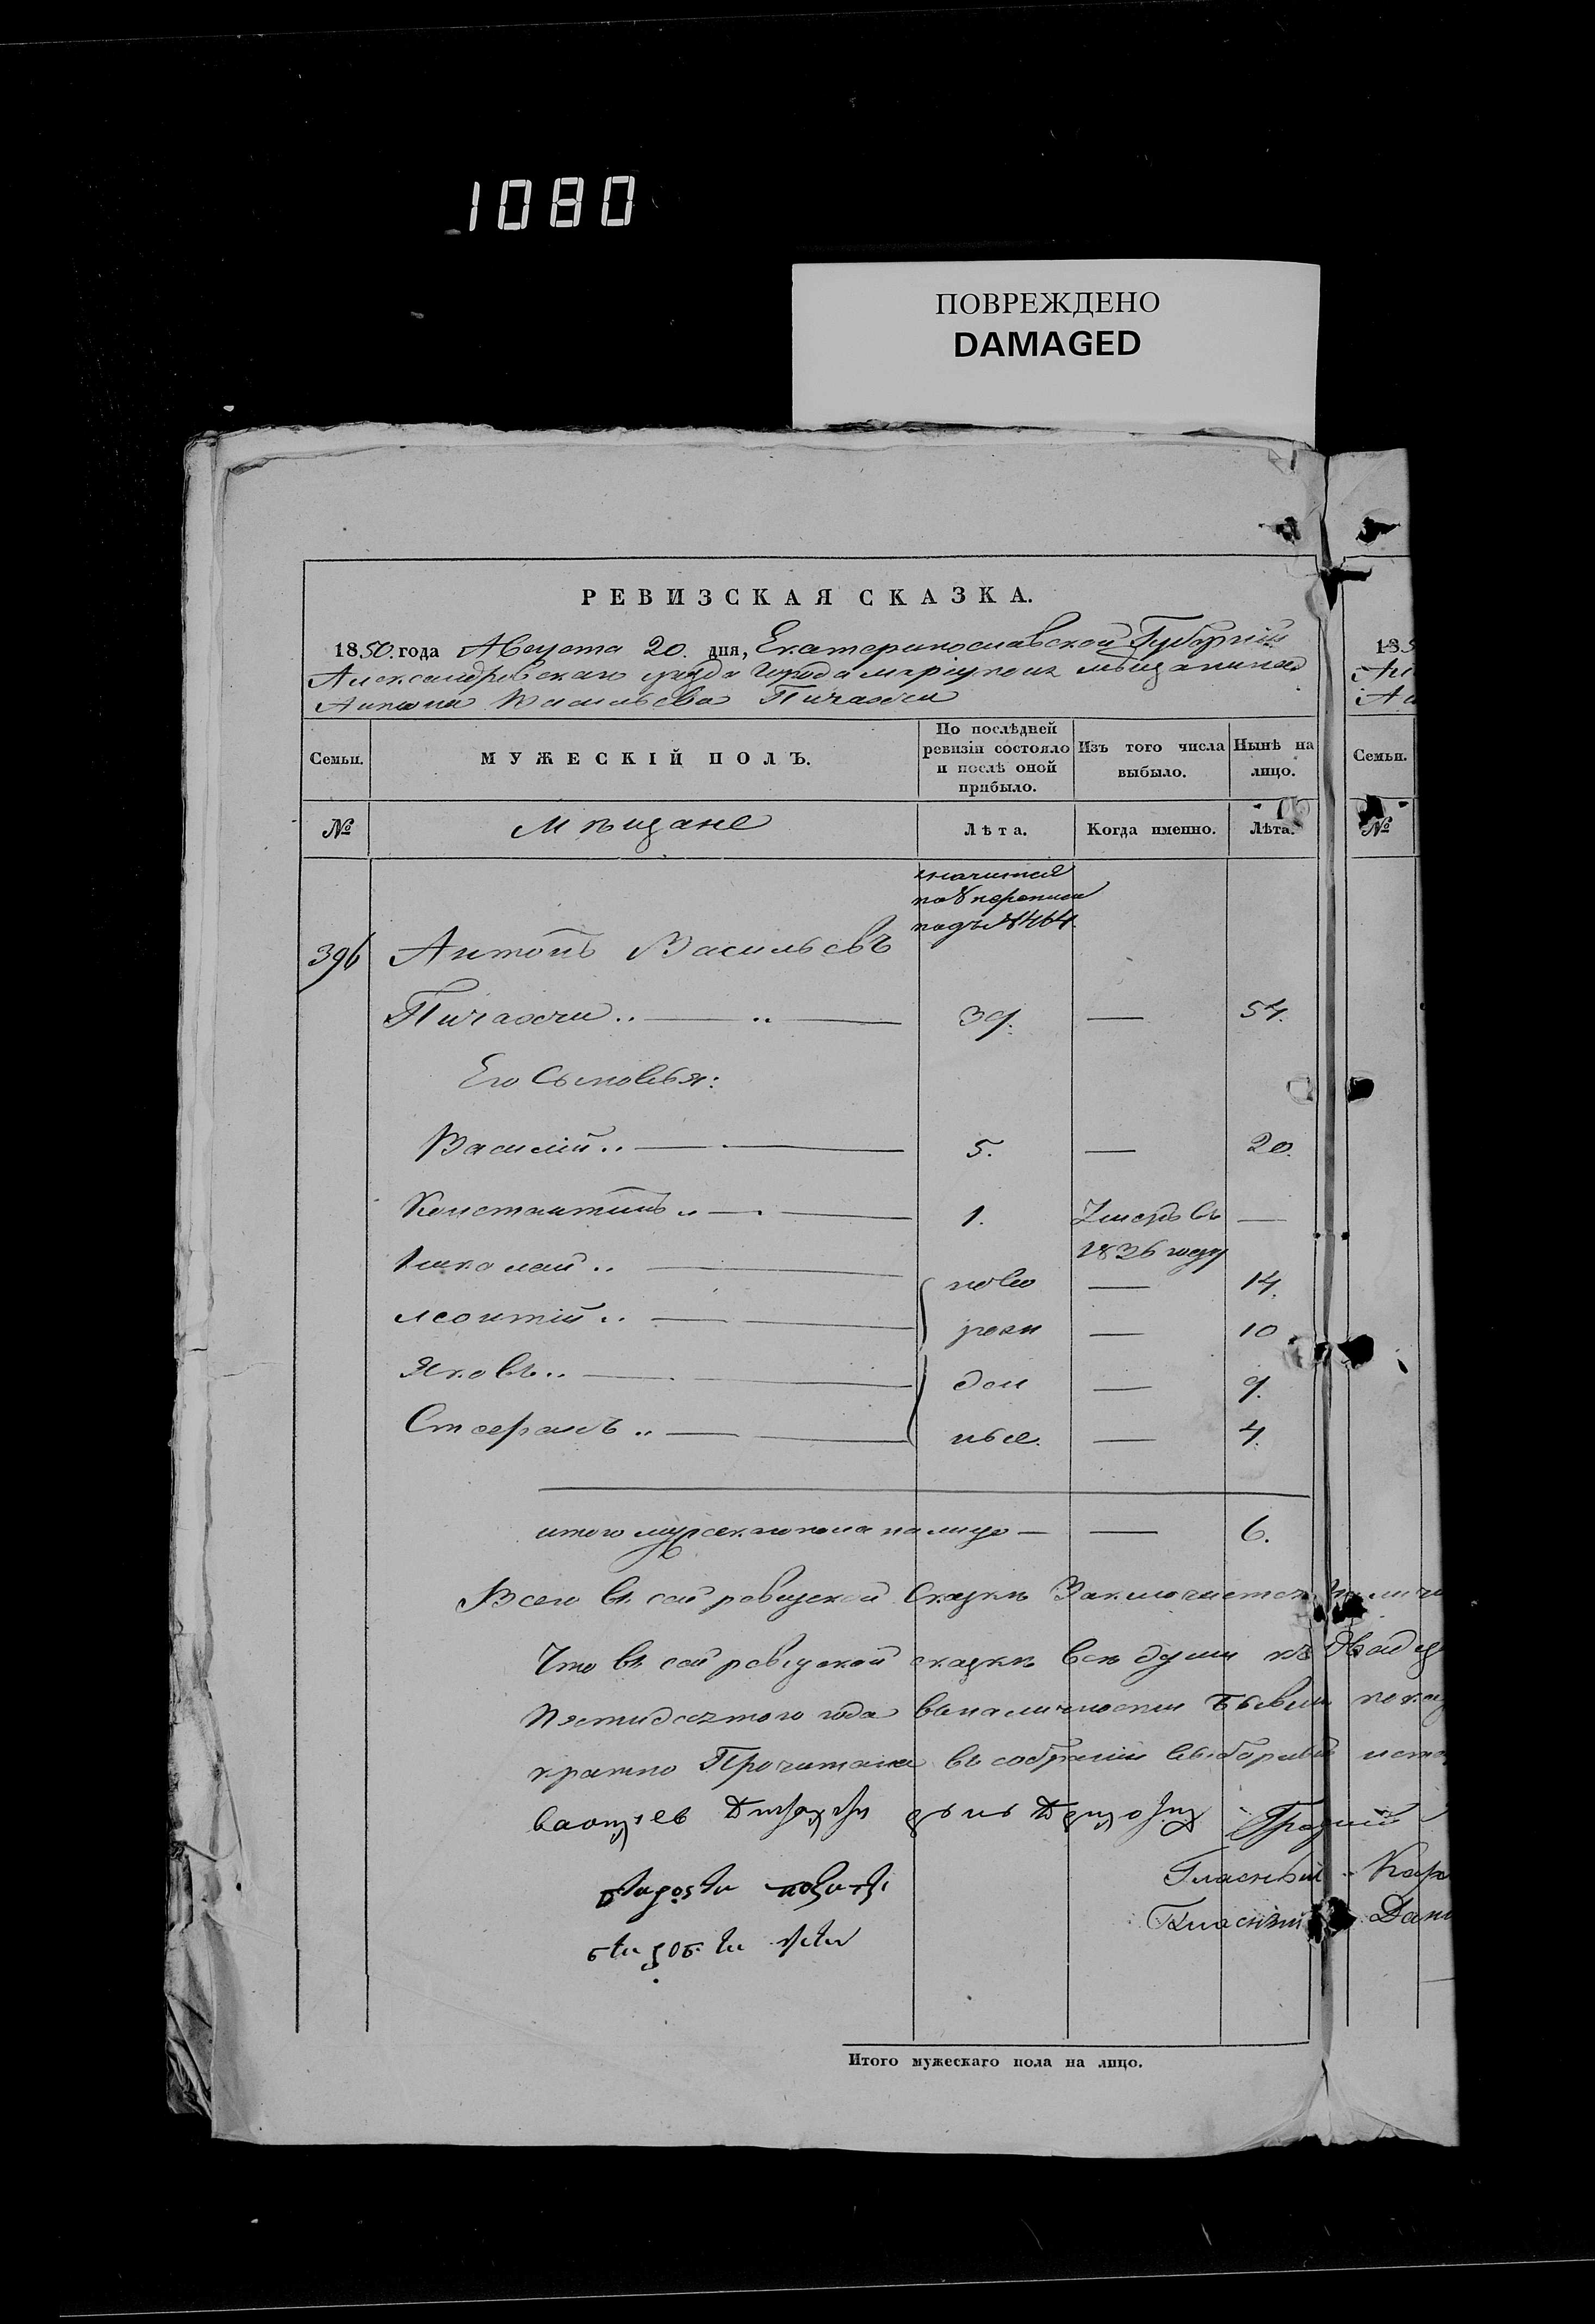 1080
ПОВРЕЖДЕНО
DAMAGED
РЕВИЗСКАЯ СКАЗКА.
1850. года Августа 20. дня, Екатеринославской Губерніи
Александровскаго уѣзда города Маріуполя мѣщанина
Антона Васильева Пичахчи
Семьи.
МУЖЕСКІЙ ПОЛЪ.
По послѣдней
ревизіи состояло
и послѣ оной
прибыло.
Изъ того числа
выбыло.
Нынѣ на
лицо.
Семьи.
№
Мѣщане
Лѣта.
Когда именно.
Лѣта.
№
значится
по 8 переписи
подъ № 464.
396 Антонъ Васильевъ
Пичахчи 39. — 54.
Его Сыновья:
Василій 5. — 20.
Константинъ 1. Умеръ въ —
1836 году
Николай ново — 14.
Леонтій рожи — 10
Яковъ ден — 9.
Стефанъ ные. — 4.
итого мужескаго пола на лицо — — 6.
Всего въ сей ревизской Сказкѣ Заключается
Что въ сей ревизской сказкѣ всѣ души
Пятидесятого года въ наличности бывши
кратно Прочитана въ собраніи
Гласный
Гласный
Итого мужескаго пола на лицо.